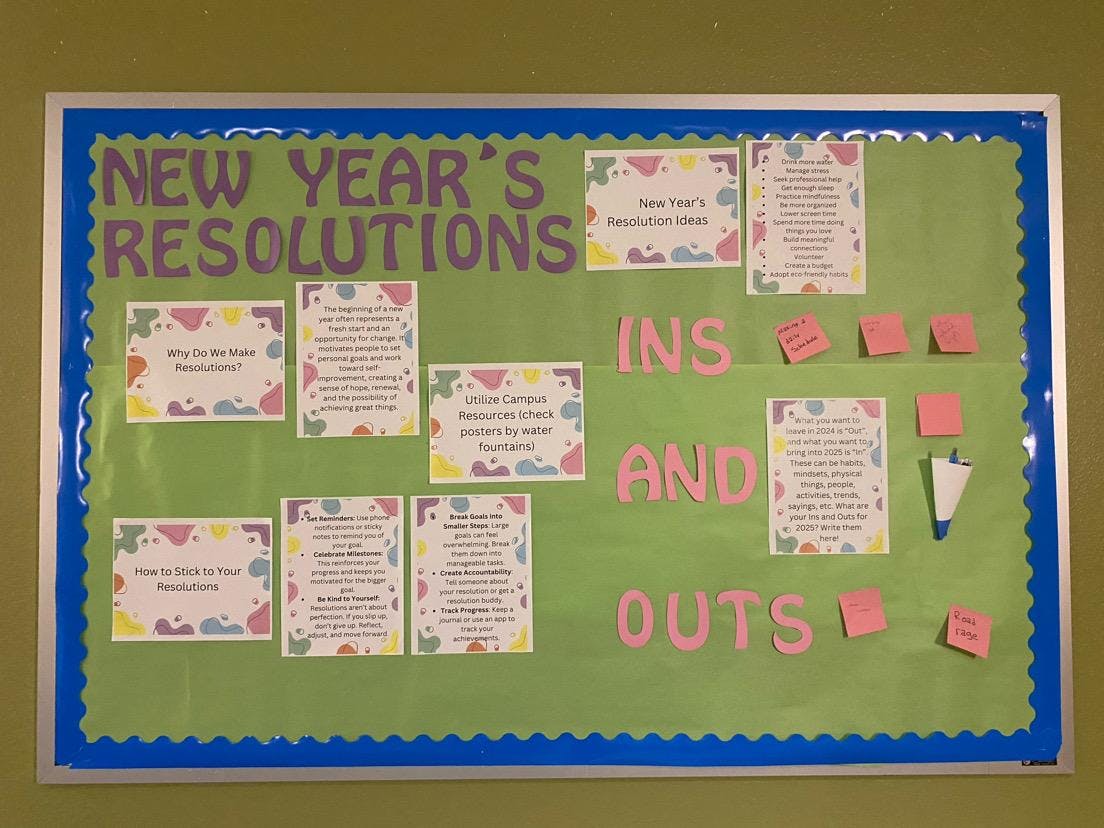 NEW YEAR'S
RESOLUTIONS
New Year's
Resolution Ideas
Drink more water
Manage stress
Seek professional help
Get enough sleep
Practice mindfulness
Be more organized
Lower screen time
Spend more time doing
things you love
Build meaningful
connections
Volunteer
Create a budget
Adopt eco-friendly habits
Why Do We Make
Resolutions?
The beginning of a new
year often represents a
fresh start and an
opportunity for change. It
motivates people to set
personal goals and work
toward self-
improvement, creating a
sense of hope, renewal,
and the possibility of
achieving great things.
Utilize Campus
Resources (check
posters by water
fountains)
How to Stick to Your
Resolutions
Set Reminders: Use phone
notifications or sticky
notes to remind you of
your goal.
Celebrate Milestones:
This reinforces your
progress and keeps you
motivated for the bigger
goal.
Be Kind to Yourself:
Resolutions aren't about
perfection. If you slip up,
don't give up. Reflect,
adjust, and move forward.
Break Goals into
Smaller Steps: Large
goals can feel
overwhelming. Break
them down into
manageable tasks.
Create Accountability:
Tell someone about
your resolution or get a
resolution buddy.
Track Progress: Keep a
journal or use an app to
track your
achievements.
INS
AND
OUTS
daily
Schedule
What you want to
leave in 2024 is "Out",
and what you want to
bring into 2025 is "In".
These can be habits,
mindsets, physical
things, people,
activities, trends,
sayings, etc. What are
your Ins and Outs for
2025? Write them
here!
Road
rage